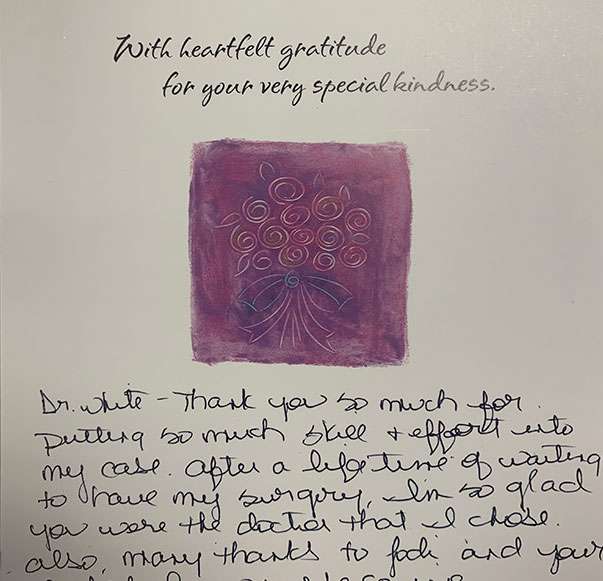 With heartfelt gratitude
for your very special kindness.
Dr. White - Thank you so much for
putting so much skill + effort into
my case. After a lifetime of waiting
to have my surgery, I'm so glad
you were the doctor that I chose.
also, many thanks to and your